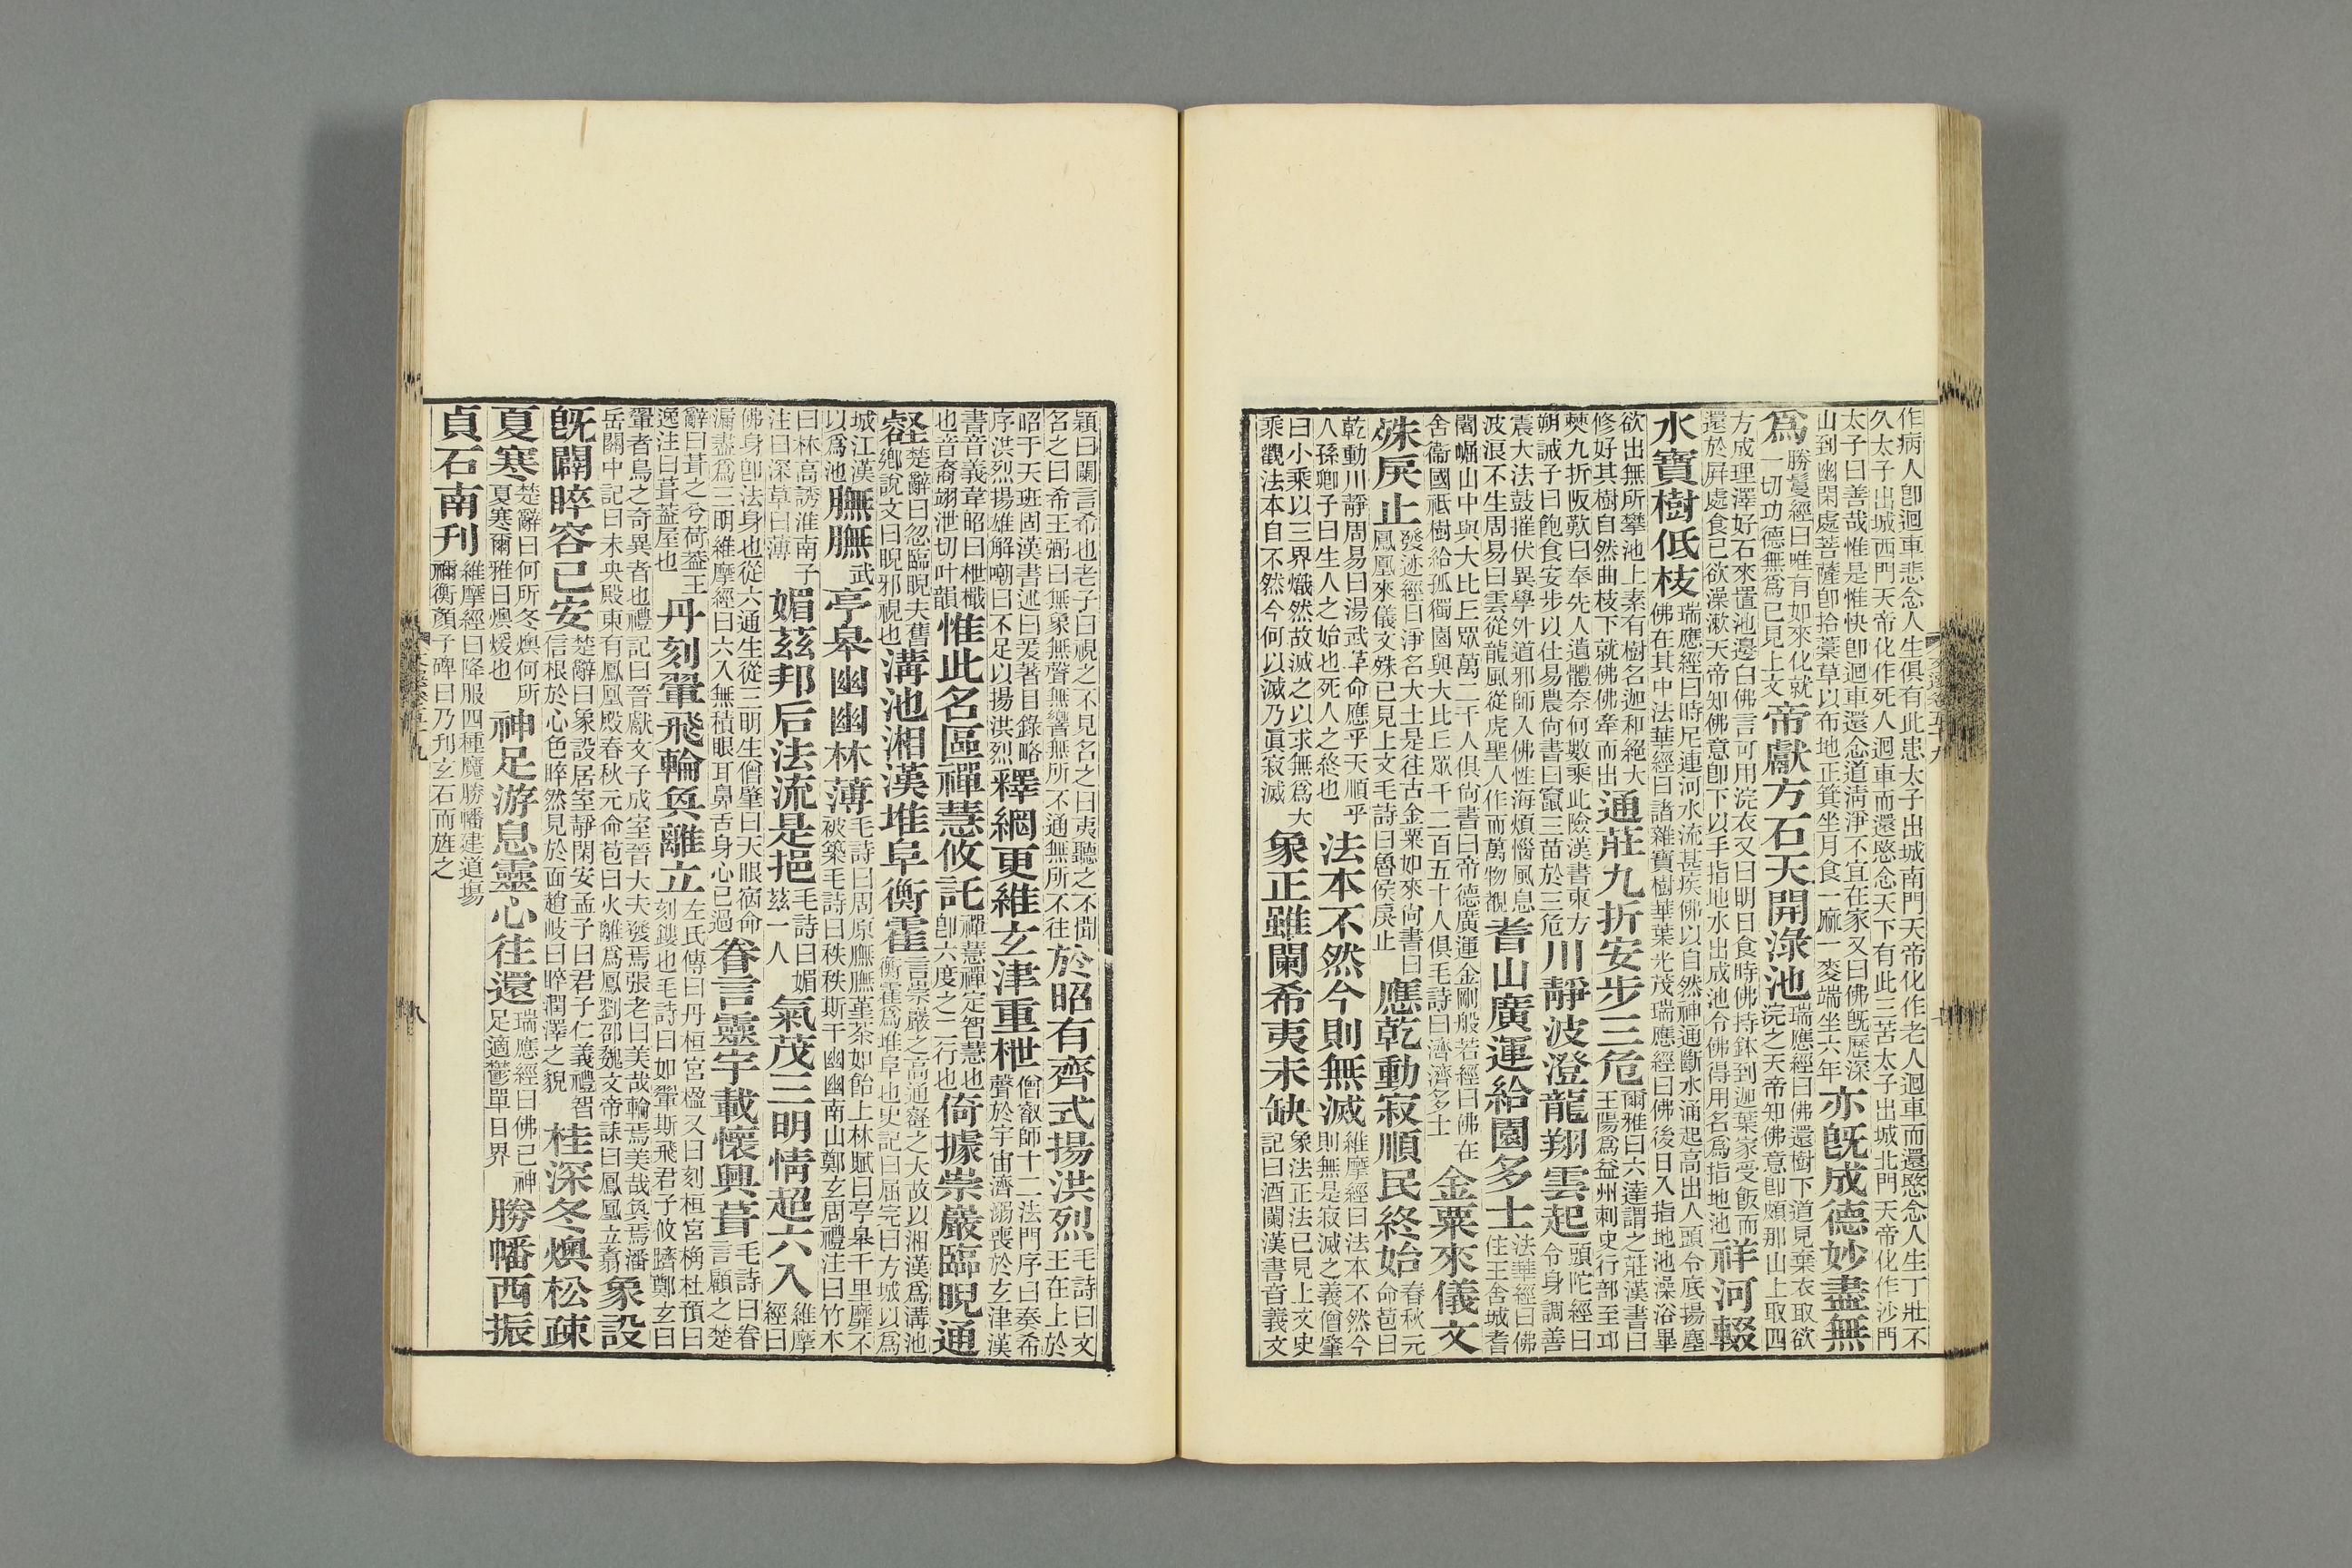 作病人卽迴車悲念人生俱有此患太子出城南門天帝化作老人迴車而還愍念人生丁壯不
久太子出城西門天帝化作死人迴車而還愍念天下有此三苦太子出城北門天帝化作沙門
太子曰善哉惟是惟快卽迴車還念道淸淨不宜在家又曰佛旣歷深
山到幽閑處菩薩卽拾藁草以布地正箕坐月食一麻一麥端坐六年
亦旣成德妙盡無
爲
勝鬘經曰唯有如來化就
一切功德無爲已見上文
帝獻方石天開淥池
瑞應經曰佛還樹下道見棄衣取欲
浣之天帝知佛意卽頞那山上取四
方成理澤好石來置池邊白佛言可用浣衣又曰明日食時佛持鉢到迦葉家受飯而
還於屏處食已欲澡漱天帝知佛意卽下以手指地水出成池令佛得用名爲指地池
祥河輟
水寶樹低枝
瑞應經曰時尼連河水流甚疾佛以自然神通斷水涌起高出人頭令底揚塵
佛在其中法華經曰諸雜寶樹華葉光茂瑞應經曰佛後日入指地池澡浴畢
欲出無所攀池上素有樹名迦和絕大
修好其樹自然曲枝下就佛佛牽而出
通莊九折安步三危
爾雅曰六達謂之莊漢書曰
王陽爲益州刺史行部至邛
僰九折阪歎曰奉先人遺體奈何數乘此險漢書東方
朔誡子曰飽食安步以仕易農尙書曰竄三苗於三危
川靜波澄龍翔雲起
頭陀經曰
令身調善
震大法鼓摧伏異學外道邪師入佛性海煩惱風息
波浪不生周易曰雲從龍風從虎聖人作而萬物覩
耆山廣運給園多士
法華經曰佛
住王舍城耆
闍崛山中與大比丘眾萬二千人俱尙書曰帝德廣運金剛般若經曰佛在
舍衞國祇樹給孤獨園與大比丘眾千二百五十人俱毛詩曰濟濟多士
金粟來儀文
殊戾止
發迹經曰淨名大士是往古金粟如來尙書曰
鳳凰來儀文殊已見上文毛詩曰魯侯戾止
應乾動寂順民終始
春秋元
命苞曰
乾動川靜周易曰湯武革命應乎天順乎
人孫卿子曰生人之始也死人之終也
法本不然今則無滅
維摩經曰法本不然今
則無是寂滅之義僧肇
曰小乘以三界熾然故滅之以求無爲大
乘觀法本自不然今何以滅乃眞寂滅
象正雖闌希夷未缺
象法正法已見上文史
記曰酒闌漢書音義文
穎曰闌言希也老子曰視之不見名之曰夷聽之不聞
名之曰希王弼曰無象無聲無響無所不通無所不往
於昭有齊式揚洪烈
毛詩曰文
王在上於
昭于天班固漢書述曰爰著目錄略
序洪烈揚雄解嘲曰不足以揚洪烈
釋網更維玄津重枻
僧叡師十二法門序曰奏希
聲於宇宙濟溺喪於玄津漢
書音義韋昭曰枻檝
也音裔翊泄切叶韻
惟此名區禪慧攸託
禪慧禪定智慧也
卽六度之二行也
倚據崇巖臨睨通
壑
楚辭曰忽臨睨夫舊
鄉說文曰睨邪視也
溝池湘漢堆阜衡霍
言崇巖之高通壑之大故以湘漢爲溝池
衡霍爲堆阜也史記曰屈完曰方城以爲
城江漢
以爲池
膴膴
武
亭皋幽幽林薄
毛詩曰周原膴膴堇荼如飴上林賦曰亭皋千里靡不
被築毛詩曰秩秩斯干幽幽南山鄭玄周禮注曰竹木
曰林高誘淮南子
注曰深草曰薄
媚茲邦后法流是挹
毛詩曰媚
茲一人
氣茂三明情超六入
維摩
經曰
佛身卽法身也從六通生從三明生僧肇曰天眼宿命
漏盡爲三明維摩經曰六入無積眼耳鼻舌身心已過
眷言靈宇載懷興葺
毛詩曰眷
言顧之楚
辭曰葺之兮荷蓋王
逸注曰葺蓋屋也
丹刻翬飛輪奐離立
左氏傳曰丹桓宮楹又曰刻桓宮桷杜預曰
刻鏤也毛詩曰如翬斯飛君子攸躋鄭玄曰
翬者鳥之奇異者也禮記曰晉獻文子成室晉大夫發焉張老曰美哉輪焉美哉奐焉潘
岳關中記曰未央殿東有鳳凰殿春秋元命苞曰火離爲鳳劉邵魏文帝誄曰鳳凰立翥
象設
旣闢睟容已安
楚辭曰象設居室靜閑安孟子曰君子仁義禮智
信根於心色睟然見於面趙岐曰睟潤澤之貌
桂深冬燠松疎
夏寒
楚辭曰何所冬燠何所
夏寒爾雅曰燠煖也
神足游息靈心往還
瑞應經曰佛已神
足適鬱單曰界
勝幡西振
貞石南刊
維摩經曰降服四種魔勝幡建道場
禰衡顏子碑曰乃刋玄石而旌之